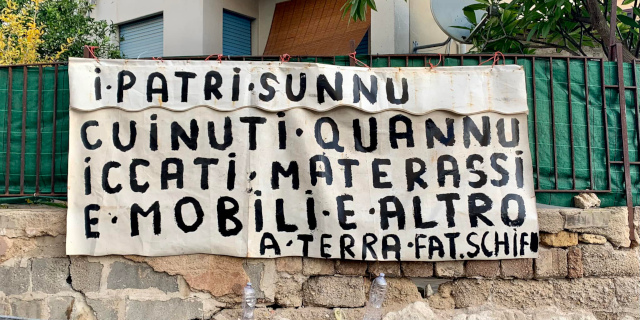 i·PATRi·SUNNU
CUiNUTi·QUANNU
iCCATi·MATERASSi
E·MOBiLi·E·ALTRO
A·TERRA·FAT.SCHiFU